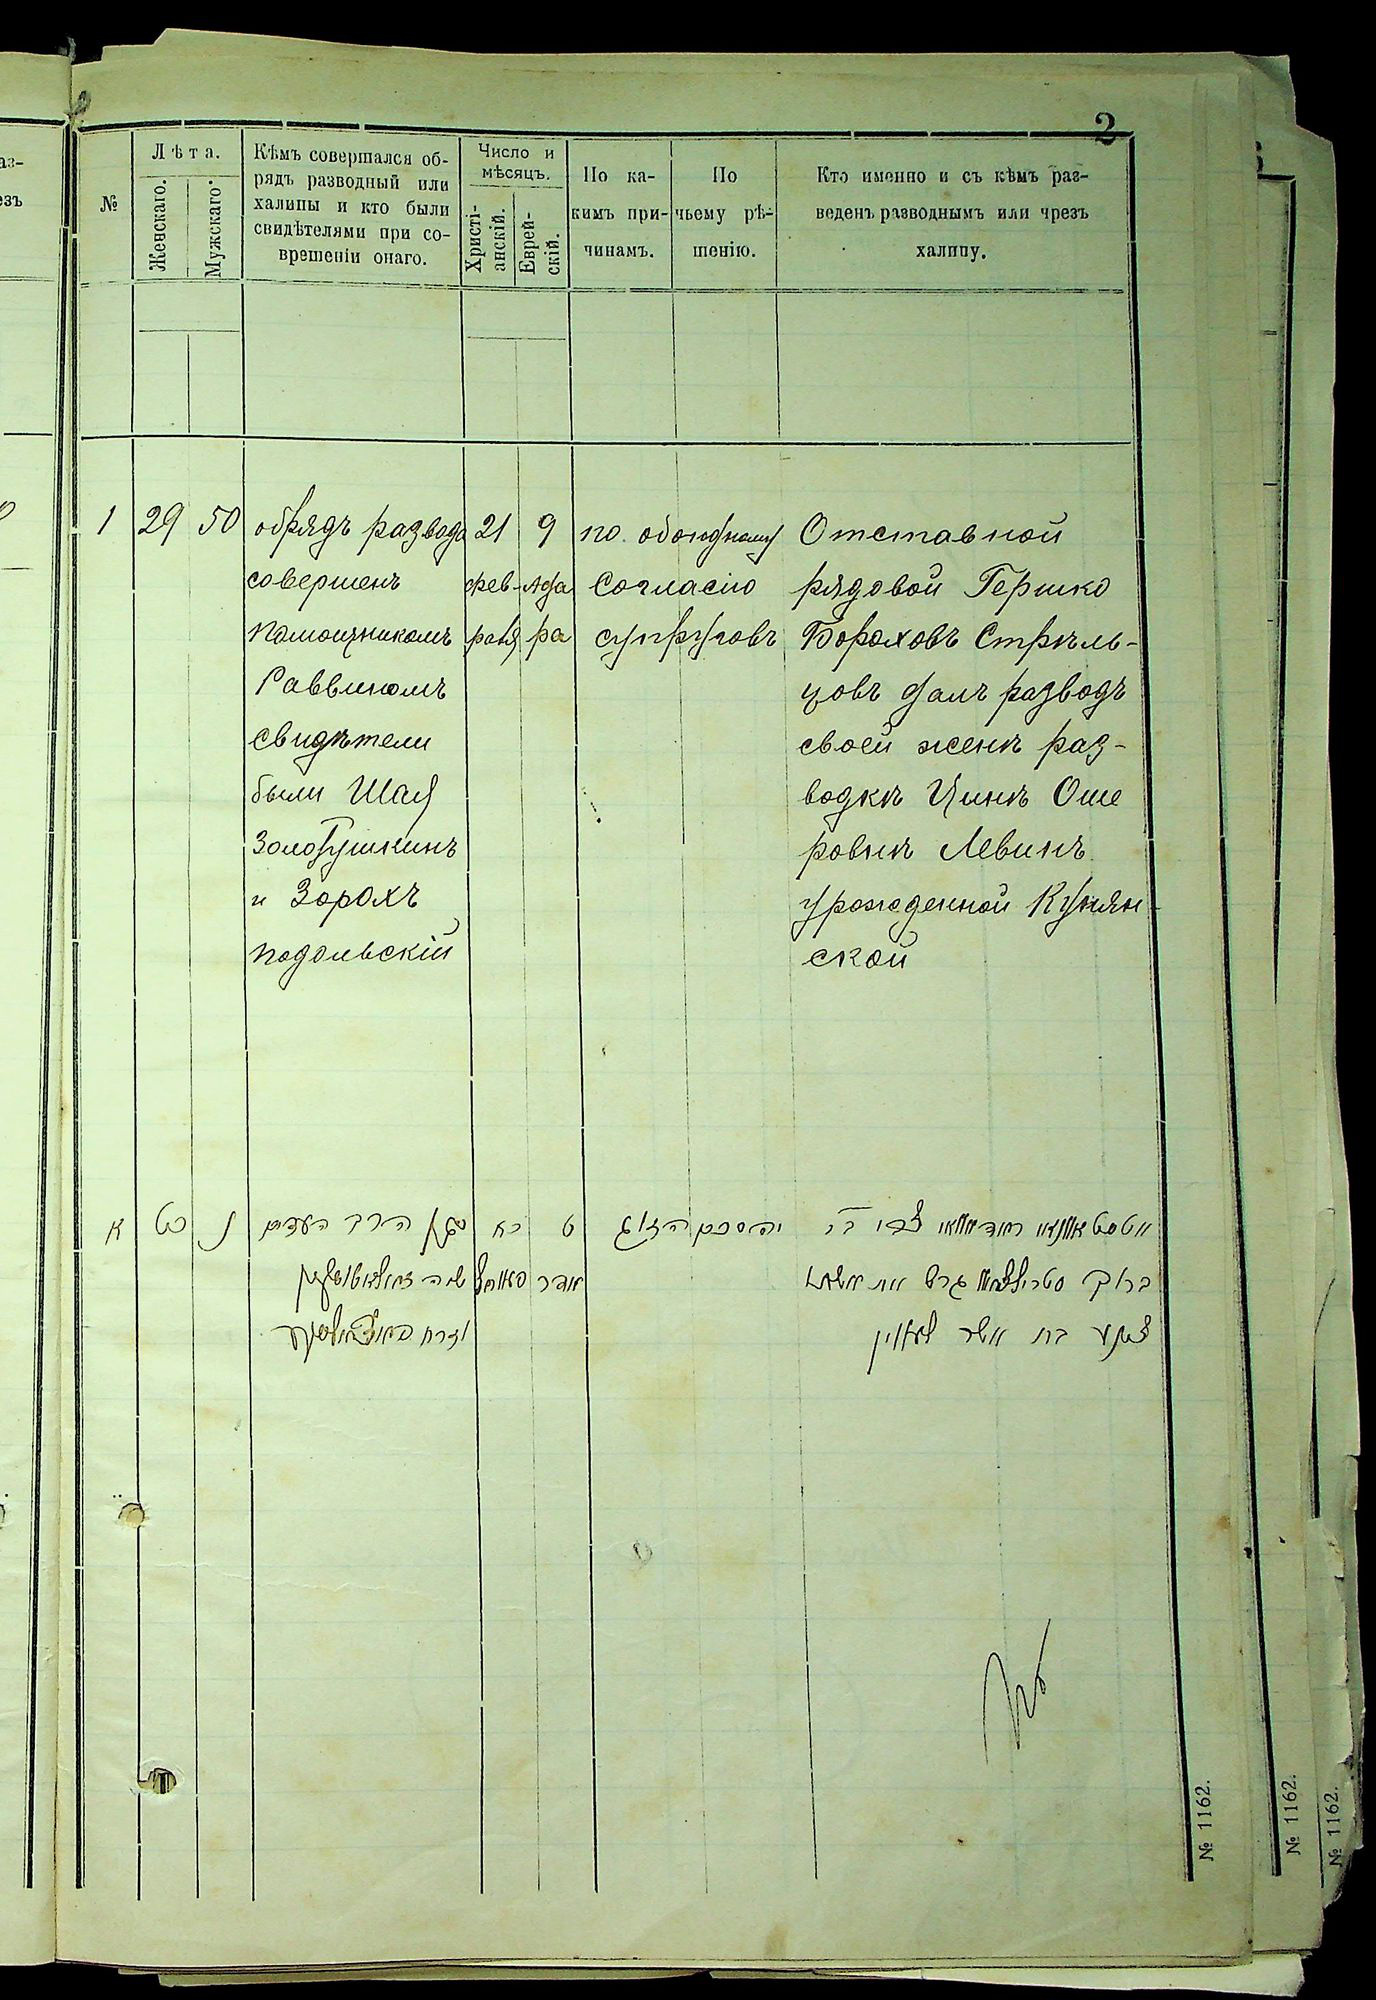 2
№
Лѣта.
Женскаго.
Мужскаго.
Кѣмъ совершался об-
рядъ разводный или
халицы и кто были
свидѣтелями при со-
врешеніи онаго.
Число и
мѣсяцъ.
Христі-
анскій.
Еврей-
скій.
По ка-
кимъ при-
чинамъ.
По
чьему рѣ-
шенію.
Кто именно и съ кѣмъ раз-
веденъ разводнымъ или чрезъ
халицу.
1
29
50
обрядъ развода
совершенъ
помощникомъ
Раввиномъ
свидѣтели
были Шая
Золотушкинъ
и Зорохъ
Подольскій
21
фев-
раля
9
Ада
ра
по обоюдному
согласію
супруговъ
Отставной
рядовой Гершко
Бороховъ Стрѣль-
цовъ далъ разводъ
своей женѣ раз-
водкѣ Цинѣ Оше
ровнѣ Левинъ
урожденной Кунян-
ской
א
כט
נ
הרב העדים
כא
ט
אדר
ברוך
גרש את אשתו
בת אשר לעווין
№ 1162.
№ 1162.
№ 1162.